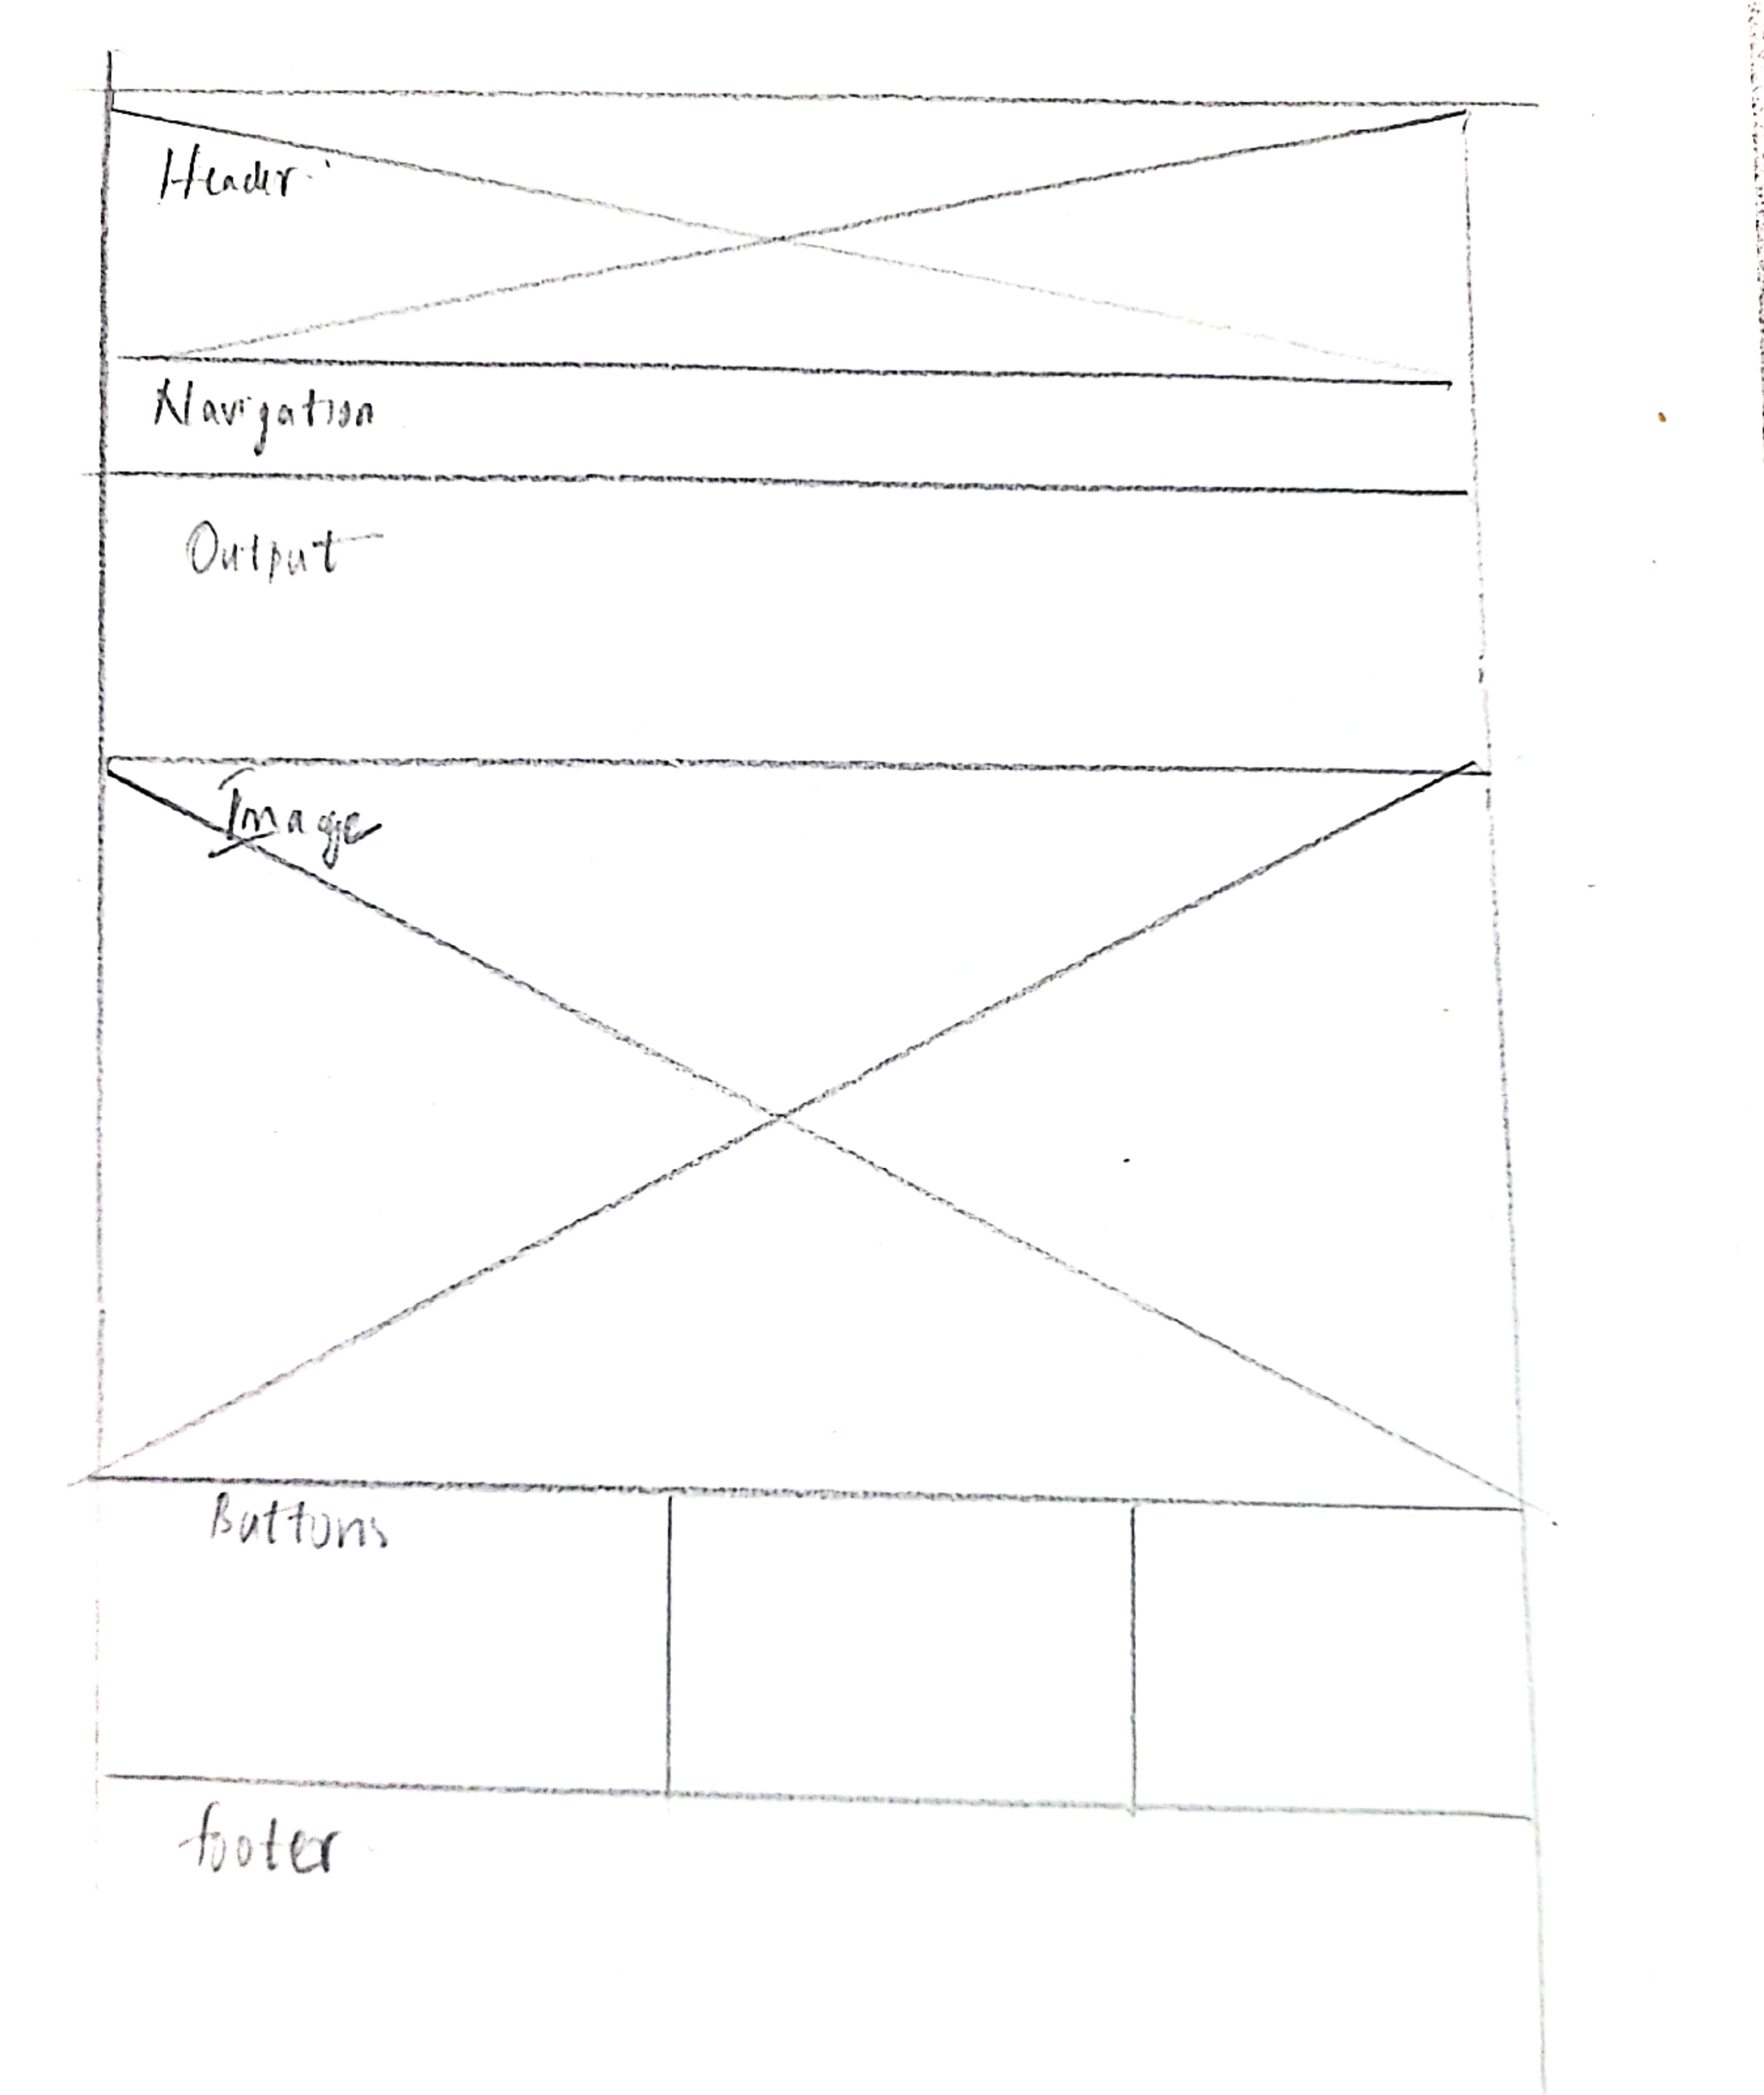 Header
Navigation
Output
Image
Buttons
footer